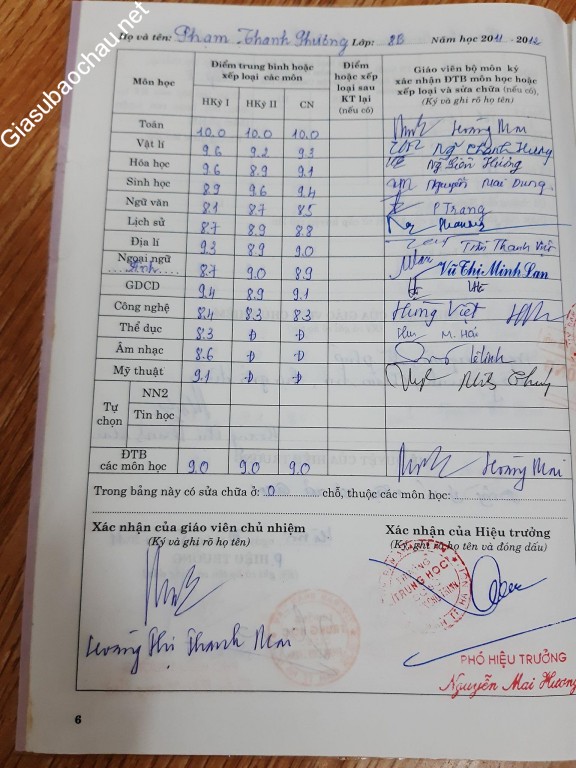 Giasubaochau.net
Họ và tên: Phạm Thanh Phương Lớp: 8B Năm học 2011 - 2012
Môn học
Điểm trung bình hoặc xếp loại các môn
HKỳ I HKỳ II CN
Điểm hoặc xếp loại sau KT lại (nếu có)
Giáo viên bộ môn ký xác nhận ĐTB môn học hoặc xếp loại và sửa chữa (nếu có), (Ký và ghi rõ họ tên)
Toán 10.0 10.0 10.0 Hoàng Mai
Vật lí 9.6 9.2 9.3
Hóa học 9.6 8.9 9.1
Sinh học 8.9 9.6 9.4 Nguyễn Mai Dung
Ngữ văn 8.1 8.7 8.5 P Trang
Lịch sử 8.7 8.9 8.8
Địa lí 9.3 8.9 9.0
Ngoại ngữ Anh 8.7 9.0 8.9 Vũ Thị Minh Lan
GDCD 9.4 8.9 9.1
Công nghệ 8.4 8.3 8.3 Hùng Việt
Thể dục 8.3 Đ Đ M. Hải
Âm nhạc 8.6 Đ Đ
Mỹ thuật 9.1 Đ Đ
Tự chọn
NN2
Tin học
ĐTB các môn học 9.0 9.0 9.0 Hoàng Mai
Trong bảng này có sửa chữa ở: 0 chỗ, thuộc các môn học:
Xác nhận của giáo viên chủ nhiệm
(Ký và ghi rõ họ tên)
Xác nhận của Hiệu trưởng
(Ký, ghi rõ họ tên và đóng dấu)
Hoàng Thị Thanh Mai
PHÓ HIỆU TRƯỞNG
Nguyễn Mai Hương
6